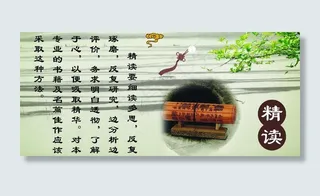 精读
精读要细读多思，反复
琢磨，反复研究，边分析边
评价，务求明白透彻，了解
于心，以便吸取精华。对本
专业的书籍及名篇佳作应该
采取这种方法。